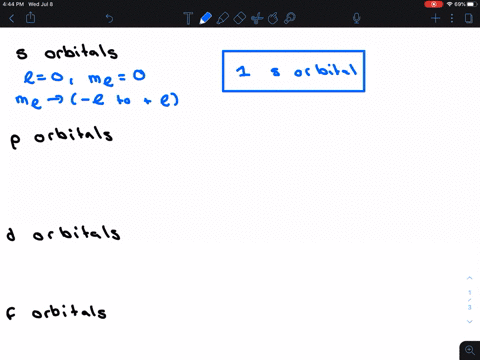 4:44 PM Wed Jul 8
69%
s orbitals
l=0, ml=0
ml→(-l to +l)
1 s orbital
p orbitals
d orbitals
f orbitals
1
/
3